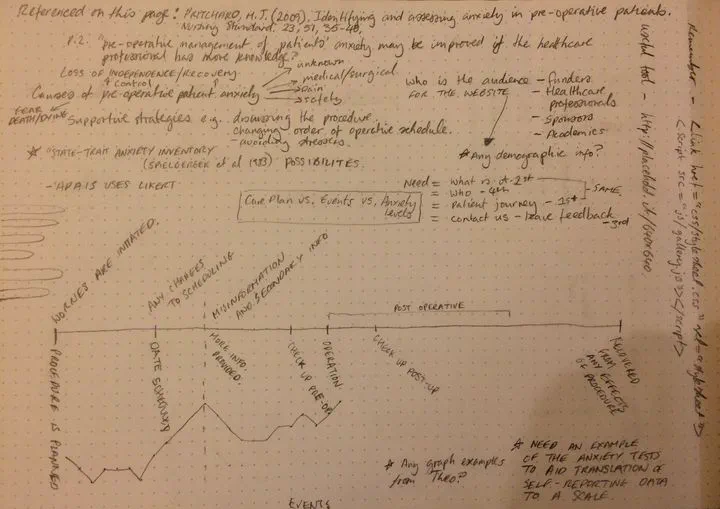 Referenced on this page: PRITCHARD, M.J. (2009). Identifying and assessing anxiety in pre-operative patients.
Nursing Standard. 23, 51, 35-40.
P.2. "pre-operative management of patients' anxiety may be improved if the healthcare
professional has more knowledge?"
LOSS OF INDEPENDENCE/RECOVERY
+ Control
Causes of pre-operative patient anxiety
unknown
medical/surgical
pain
safety
FEAR
DEATH/DYING
Supportive strategies e.g. discussing the procedure.
- changing order of operative schedule.
- avoiding stressors.
* "STATE-TRAIT ANXIETY INVENTORY
(SPIELBERGER et al 1983) POSSIBILITES.
- APAIS USES LIKERT
WHO IS THE AUDIENCE
FOR THE WEBSITE
- Funders
- Healthcare
professionals
- Sponsors
- Academics
* Any demographic info?
Need = What is it - 2nd
= Who - 4th
= Patient journey - 1st
= contact us - leave feedback
- 3rd
- SAME
Care Plan vs. Events vs. Anxiety
Levels
Remember - <link href="css/stylesheet.css" rel="stylesheet">
<script src="js/gallery.js"></script>
useful tool - http://placehold.it/640x600
WORRIES ARE INITIATED.
ANY CHANGES
TO SCHEDULING
MISINFORMATION
AND SECONDARY INFO
POST OPERATIVE
PROCEDURE IS PLANNED
DATE SCHEDULED
MORE INFO.
PROVIDED.
CHECK UP PRE-OP
OPERATION
CHECK UP POST-UP
RECOVERED
FROM
ANY EFFECTS
OF PROCEDURE
* Any graph examples
from Theo?
* NEED AN EXAMPLE
OF THE ANXIETY TESTS
TO AID TRANSLATION OF
SELF-REPORTING DATA
TO A SCALE.
EVENTS